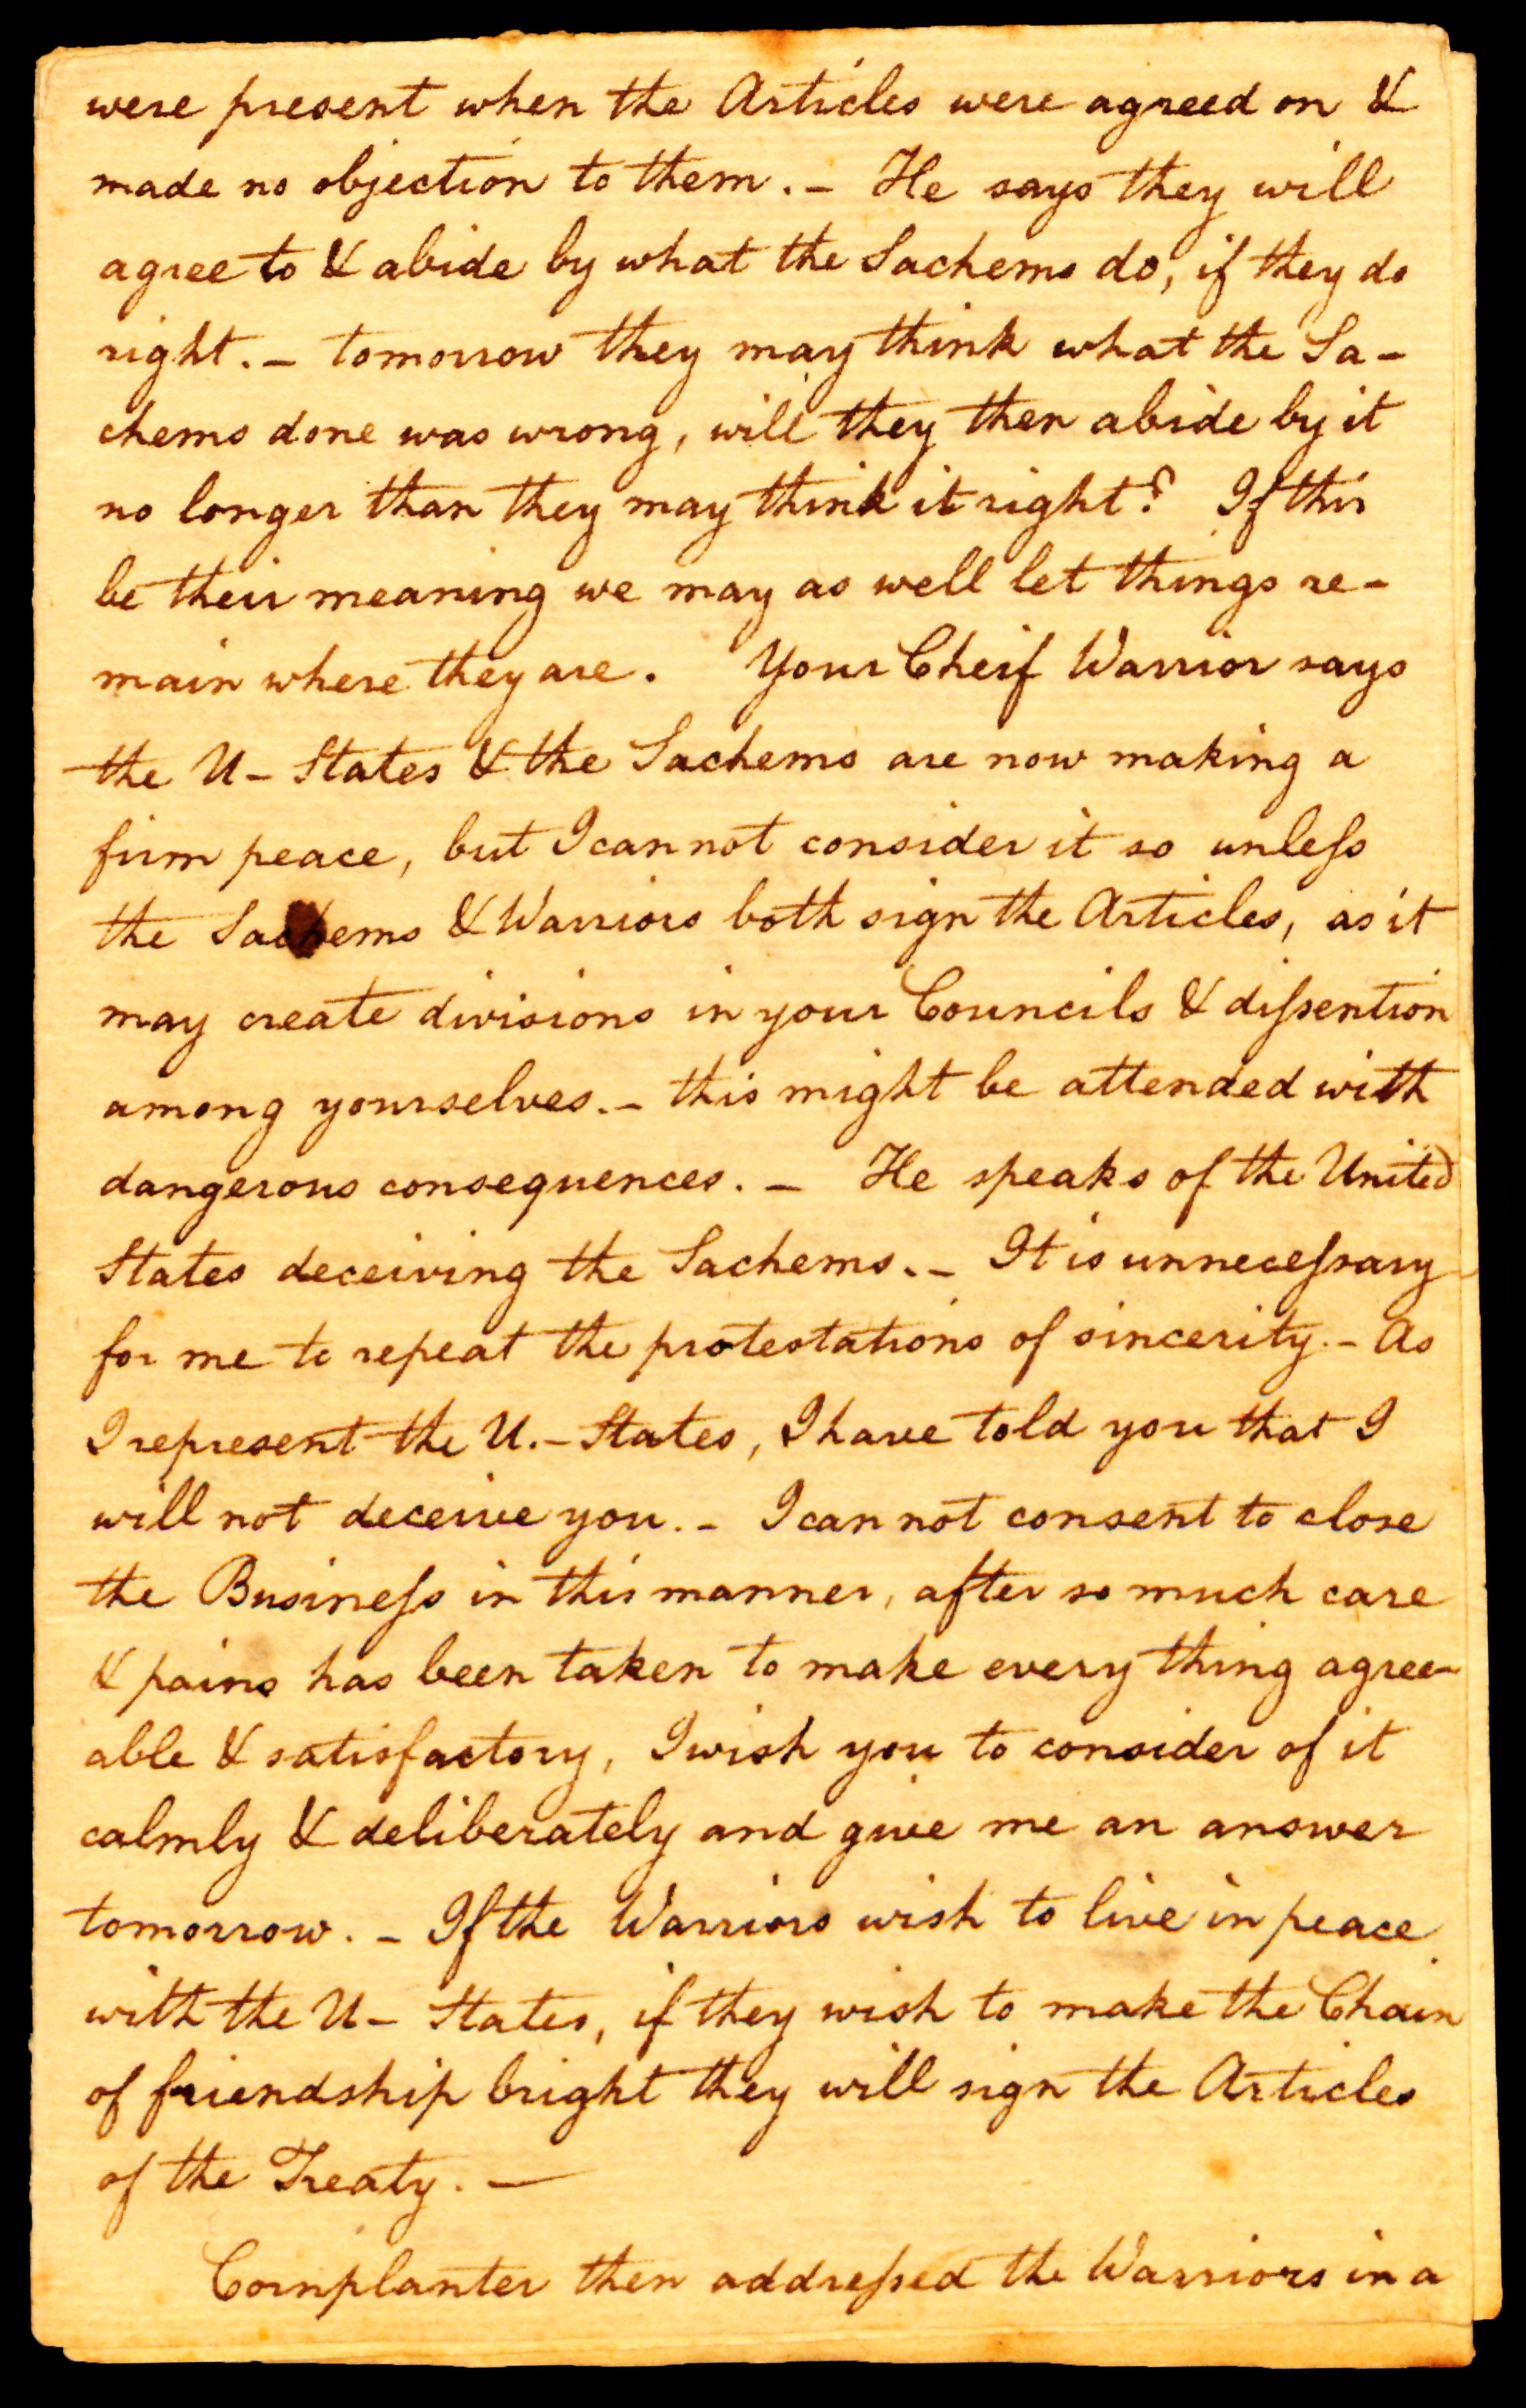 were present when the Articles were agreed on &
made no objection to them. – He says they will
agree to & abide by what the Sachems do, if they do
right. – tomorrow they may think what the Sa-
chems done was wrong, will they then abide by it
no longer than they may think it right? If this
be their meaning we may as well let things re-
main where they are. Your Cheif Warrior says
the U– States & the Sachems are now making a
firm peace, but I cannot consider it so unleſs
the Sachems & Warriors both sign the Articles, as it
may create divisions in your Councils & diſsention
among yourselves. – this might be attended with
dangerous consequences. – He speaks of the United
States deceiving the Sachems. – It is unneceſsary
for me to repeat the protestations of sincerity. – As
I represent the U. – States, I have told you that I
will not deceive you. – I can not consent to close
the Busineſs in this manner, after so much care
& pains has been taken to make every thing agree-
able & satisfactory, I wish you to consider of it
calmly & deliberately and give me an answer
tomorrow. – If the Warriors wish to live in peace
with the U– States, if they wish to make the Chain
of friendship bright they will sign the Articles
of the Treaty. —
Cornplanter then addreſsed the Warriors in a